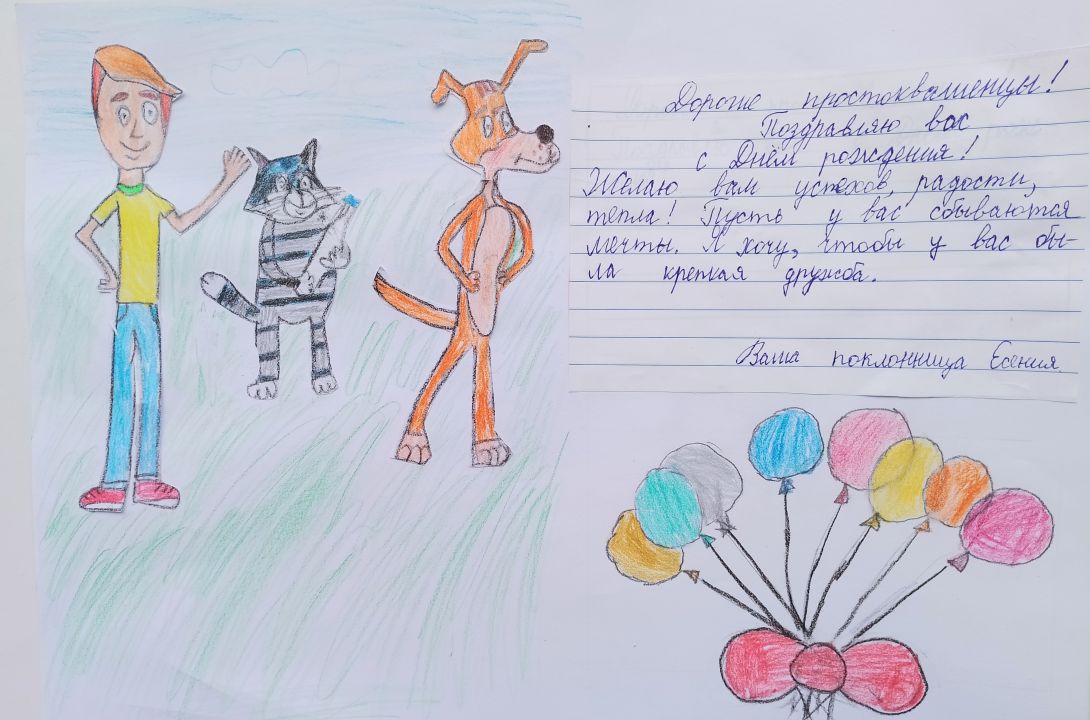 Дорогие простоквашенцы!
Поздравляю вас
с Днём рождения!
Желаю вам успехов, радости,
тепла! Пусть у вас сбываются
мечты. Я хочу, чтобы у вас бы-
ла крепкая дружба.
Ваша поклонница Есения